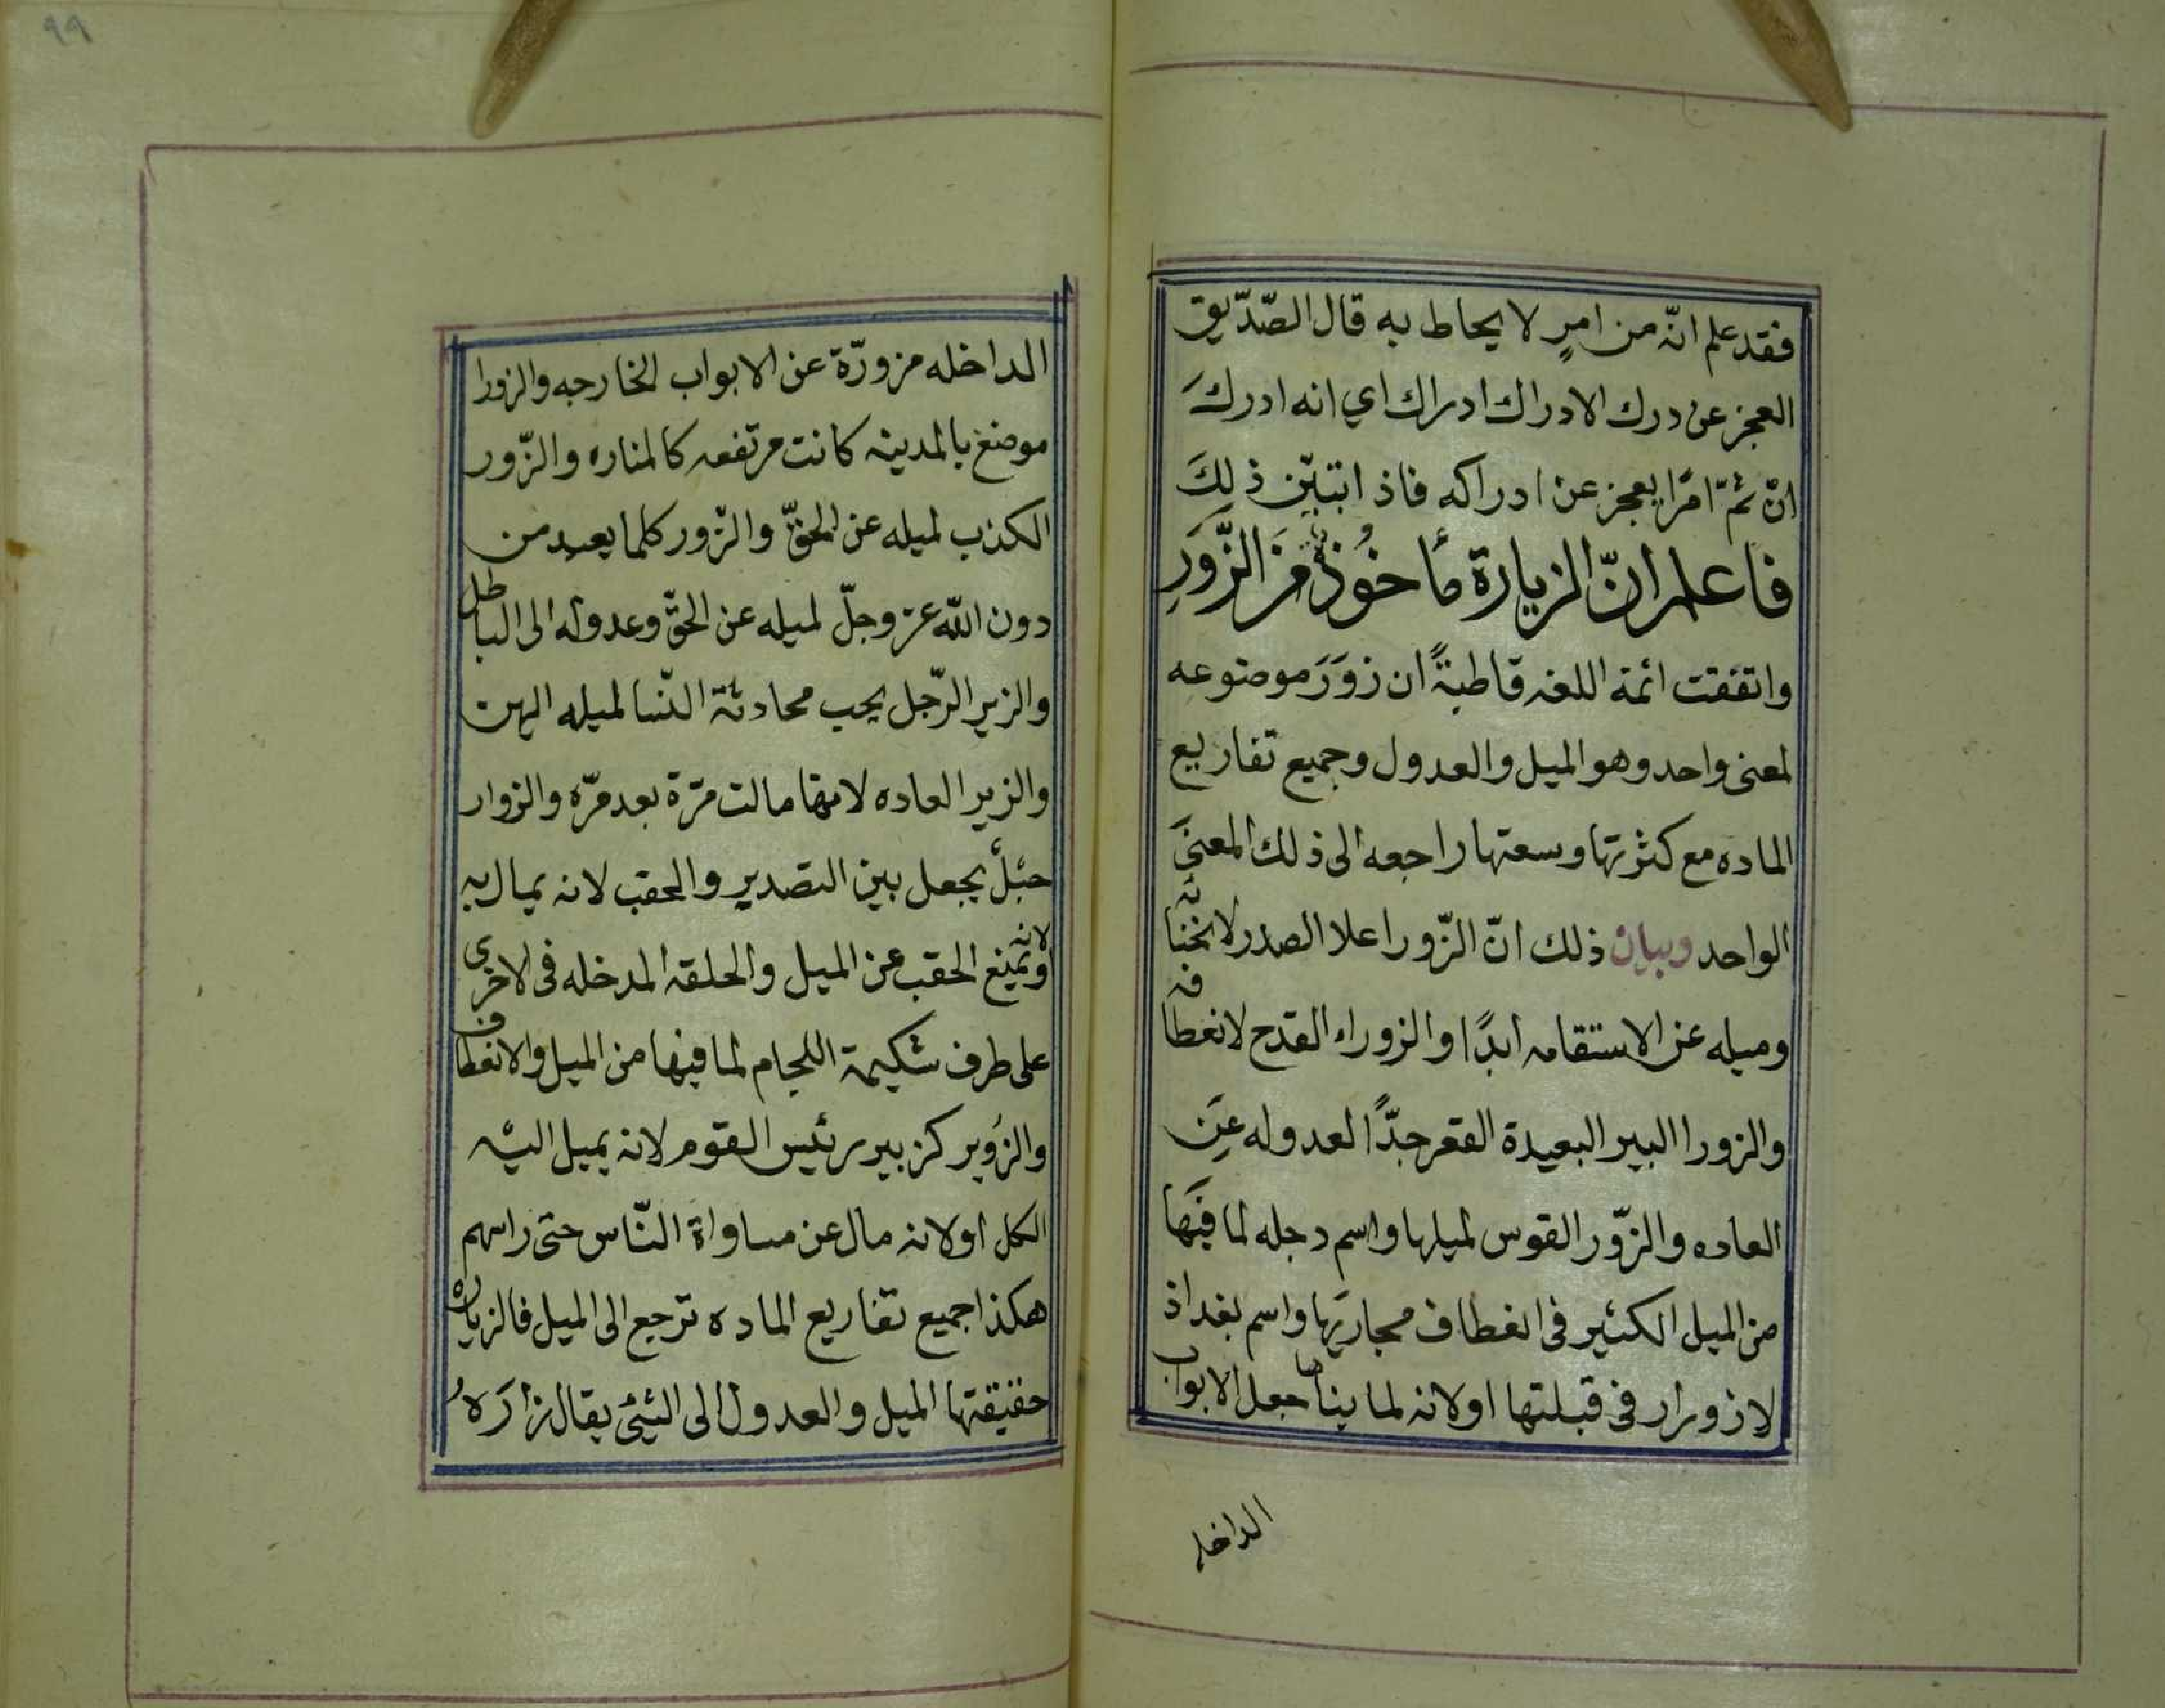 فقد علم انّه من امرٍ لا يحاط به قال الصّدّيق
العجز عن درك الادراك ادراك اي انه ادركَ
انّ ثمّ امرًا يعجز عن ادراكه فاذا تبيّن ذلِكَ
فاعلم انّ الزيارة مأخوُذٌ مَن الزَّورِ
واتفقت ائمة اللغه قاطبةً ان زوَرَ موضوعه
لمعنى واحد وهو الميل والعدول وجميع تفاريع
الماده مع كثرتها وسعتها راجعه الى ذلك المعنىَ
الواحد وبيان ذلك انّ الزّور اعلا الصدر لانحنائه
وميله عن الاستقامه ابدًا والزوراء القدح لانعطافه
والزورا البير البعيدة القعر جدًّا لعدوله عنَ
العاده والزّور القوس لميلها واسم دجله لما فيَها
من الميل الكثير فى انعطاف مجاريها واسم بغداذ
لازورار فى قبلتها اولانه لما بناها جعل الابواب
الداخله
٩٩
الداخله مزورّة عن الابواب الخارجه والزورا
موضع بالمدينه كانت مرتفعه كالمناره والزّور
الكذب لميله عن الحقّ والزّور كلما يعبد من
دون الله عز وجلّ لميله عن الحقّ وعدوله الى الباطل
والزير الرّجل يحب محادثة النّسا لميله اليهن
والزير العاده لانها مالت مرّة بعد مرّه والزوار
حبْلٌ يجعل بين التصدير والحقب لانه يمال به
ولانه يمنع الحقب عن الميل والحلقه المدخله فى الاخرى
على طرف شكيمة اللجام لما فيها من الميل والانعطاف
والزوُير كزبير رئيس القوم لانه يميل اليْه
الكل اولانه مال عن مساواة النّاس حتى راسهم
هكذا جميع تفاريع الماده ترجع الى الميل فالزياره
حقيقتها الميل والعدول الى الشيئ يقال زارَهُ